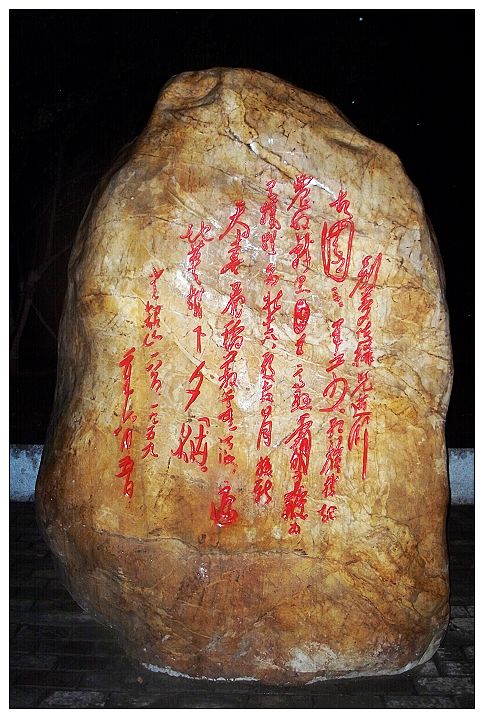 别梦依稀咒逝川
故园三十二年前红旗卷起
农奴戟黑手高悬霸主鞭为
有牺牲多壮志敢教日月换新
天喜看稻菽千重浪遍
地英雄下夕烟
韶山一首一九五九
年六月